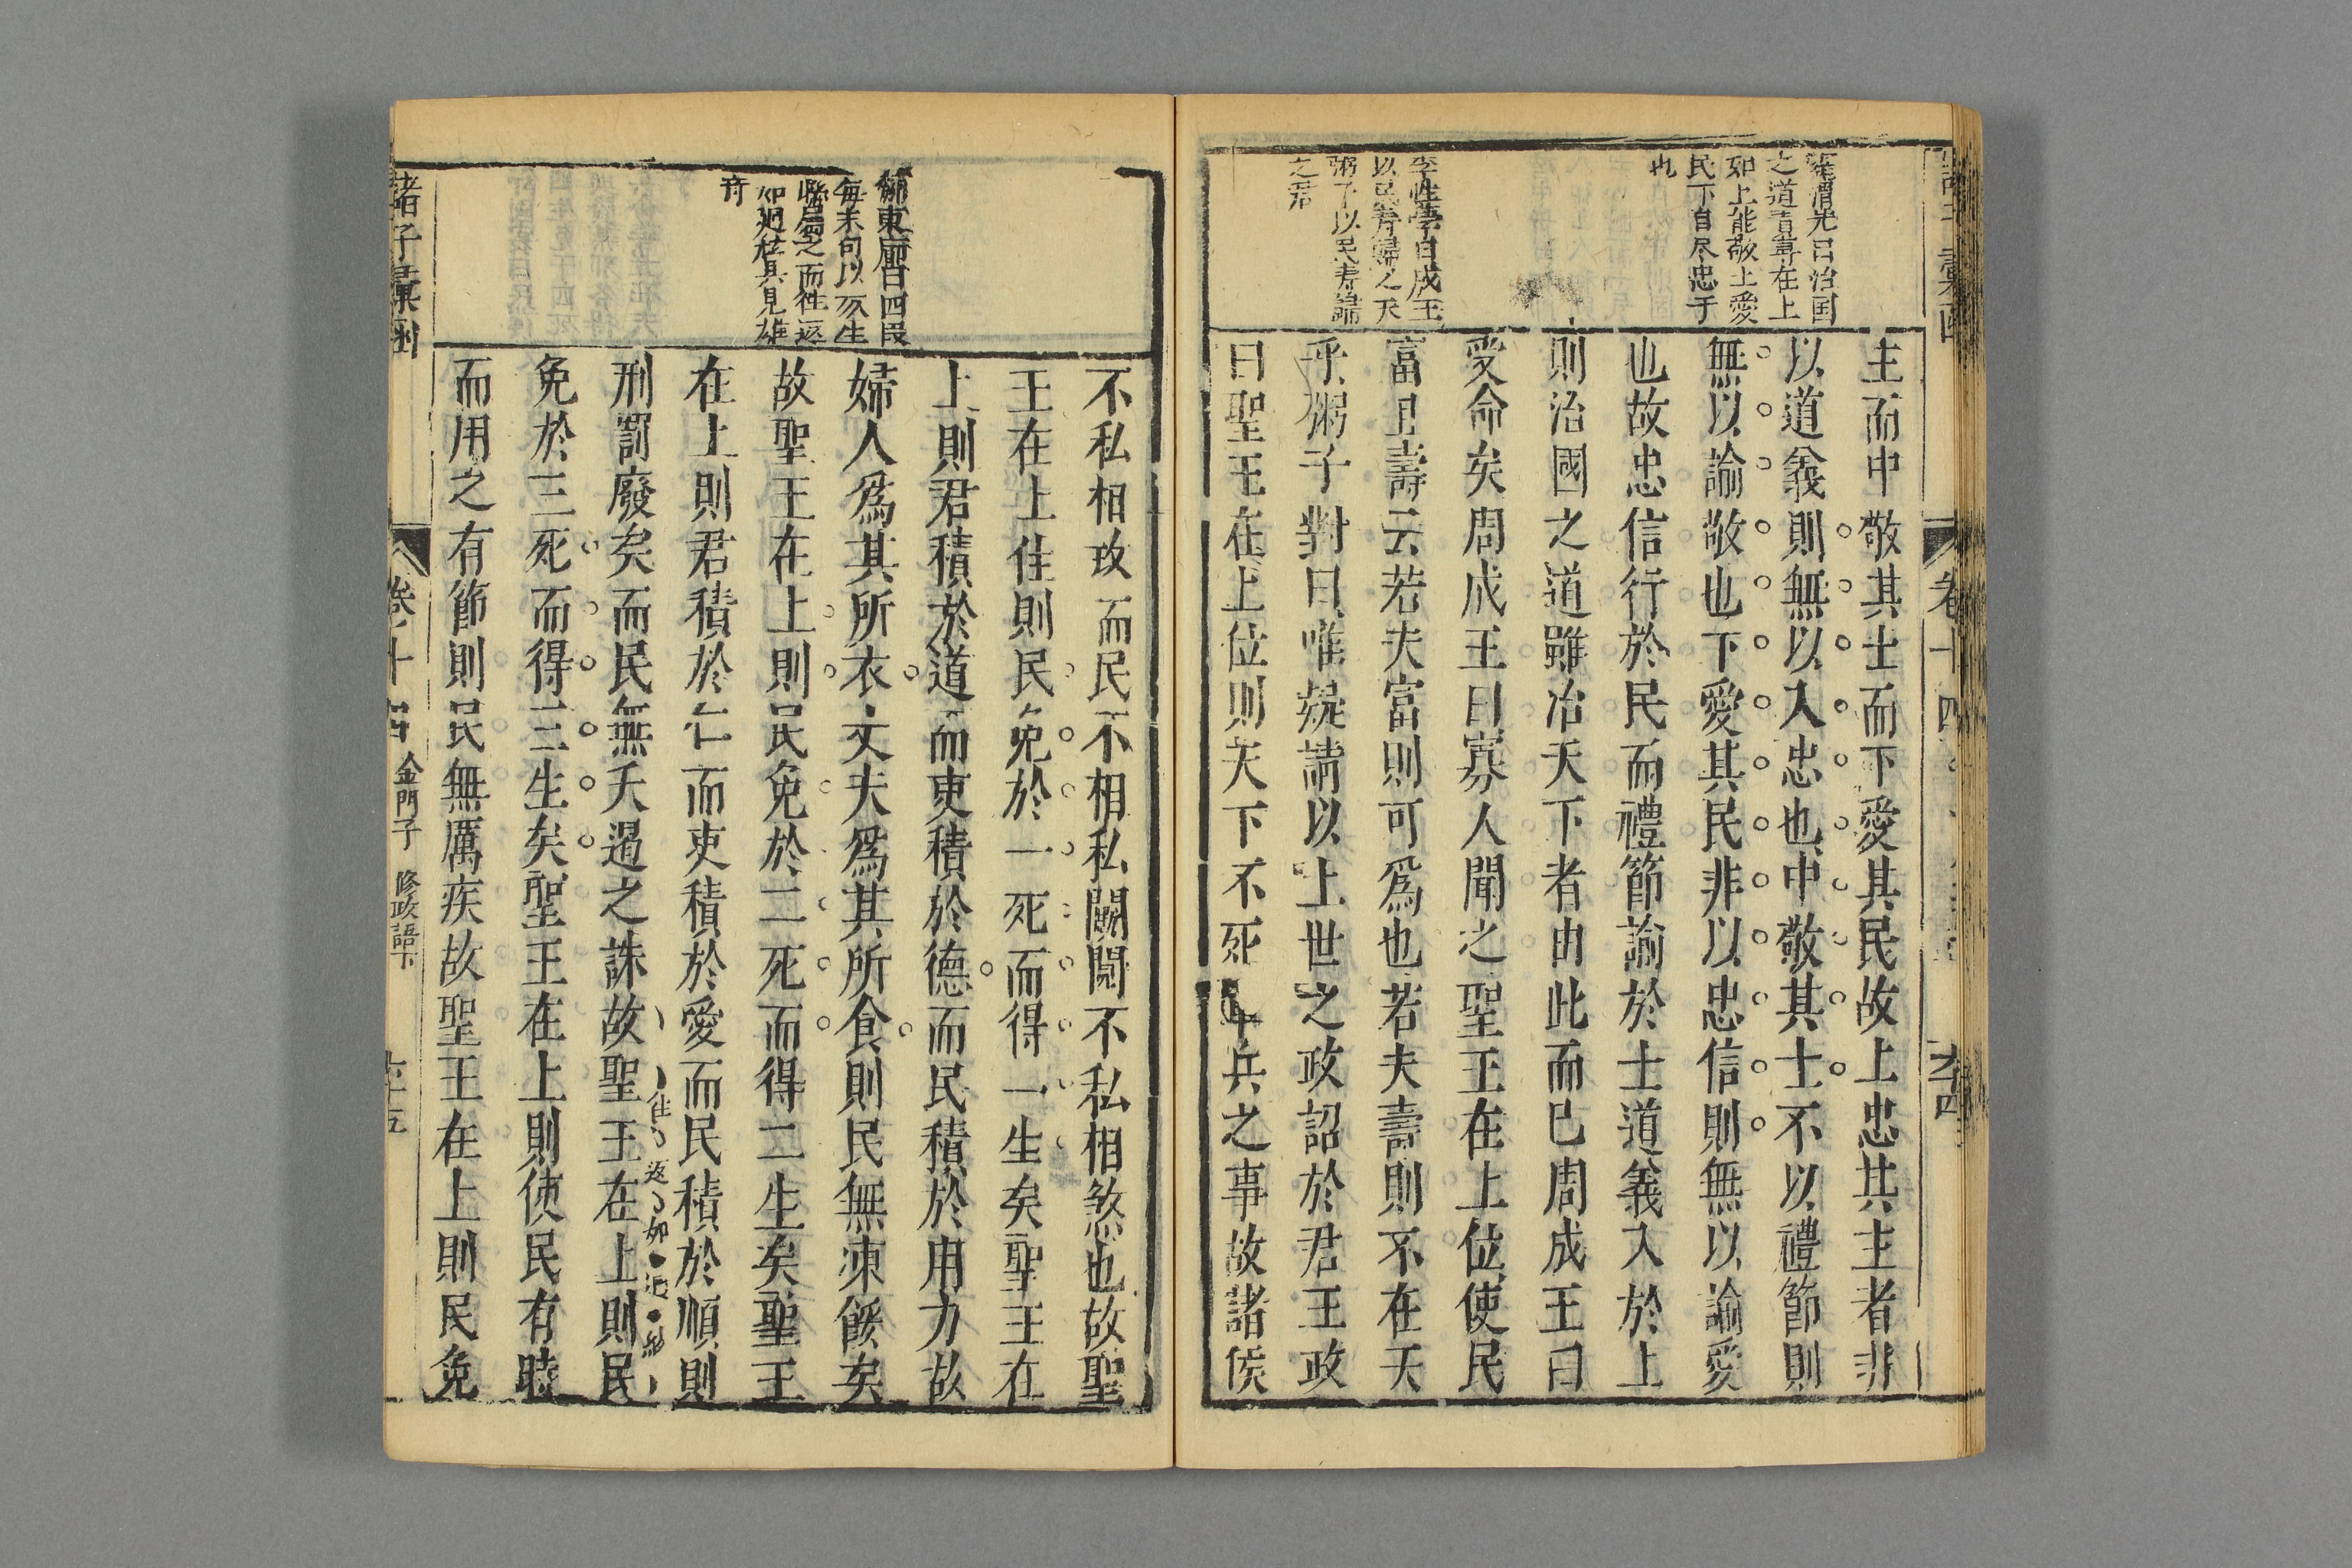 主而中敬其士而下愛其民故上忠其主者非
以道義則無以入忠也中敬其士不以禮節則
無以諭敬也下愛其民非以忠信則無以諭愛
也故忠信行於民而禮節諭於士道義入於上
則治國之道雖治天下者由此而已周成王曰
受命矣周成王曰寡人聞之聖王在上位使民
富且壽云若夫富則可為也若夫壽則不在天
乎粥子對曰唯疑請以上世之政詔於君王政
曰聖王在上位則天下不死軍兵之事故諸侯
之道責專在上
如上能敬上愛
民下自尽忠于
也
李性學曰成王
以民寿歸之天
粥子以民寿歸
之君
卷十四
六十四
不私相攻而民不相私鬬鬩不私相煞也故聖
王在上位則民免於一死而得一生矣聖王在
上則君積於道而吏積於德而民積於用力故
婦人為其所衣丈夫為其所食則民無凍餒矣
故聖王在上則民免於二死而得二生矣聖王
在上則君積於仁而吏積於愛而民積於順則
刑罰廢矣而民無夭遏之誅故聖王在上則民
免於三死而得三生矣聖王在上則使民有時
而用之有節則民無厲疾故聖王在上則民免
每末句以死生
二字屬之而往返
如迴茲具見雄
奇
諸子彙函
卷十四
金門子
修政語下
六十五